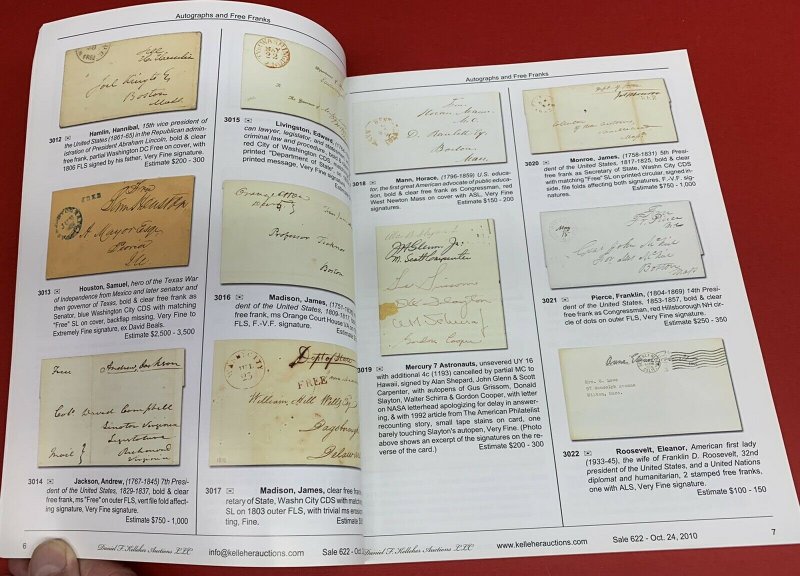 Autographs and Free Franks
3012
Hamlin, Hannibal, 15th vice president of
the United States (1861-65) in the Republican admin-
istration of President Abraham Lincoln, bold & clear
free frank, partial Washington DC Free on cover, with
1806 FLS signed by his father, Very Fine signature.
Estimate $200 - 300
FREE
Sam Houston
A Mayor Esqr
Peoria
Ill
3013
Houston, Samuel, hero of the Texas War
of Independence from Mexico and later senator and
then governor of Texas, bold & clear free frank as
Senator, blue Washington CDS with matching
"Free" SL on cover, backflap missing, Very Fine to
Extremely Fine signature, ex David Beals.
Estimate $2,500 - 3,500
Free
Andrew Jackson
Colo David Campbell
Senator Virginia
Richmond
Virginia
3014
Jackson, Andrew, (1767-1845) 7th Presi-
dent of the United States, 1829-1837, bold & clear
free frank, ms "Free" on outer FLS, vert file fold affects
signature, Very Fine signature.
Estimate $750 - 1,000
3015
Livingston, Edward
can lawyer, legislator, and
criminal law and procedure,
red City of Washington CDS
printed "Department of State"
printed message, Very Fine sig
Professor Ticknor
Boston
3016
Madison, James, (1751-
dent of the United States, 1809-1817,
frank, ms Orange Court House VA on
FLS, F.-V.F. signature.
Dept of State
FREE
William Hill Wells Esq
Dagsborough
Delaware
3017
Madison, James, clear free frank
retary of State, Washn City CDS with match
SL on 1803 outer FLS, with trivial ms ero
ting, Fine.
Estimate $350
6
Daniel F. Kelleher Auctions LLC
info@kelleherauctions.com
Sale 622 - Oct.
Autographs and Free Franks
Horace Mann
D. Bartlett Esq
Boston
Mass.
3018
Mann, Horace, (1796-1859) U.S. educa-
tor, the first great American advocate of public educa-
tion, bold & clear free frank as Congressman, red
West Newton Mass on cover with ASL, Very Fine
signatures.
Estimate $150 - 200
JH Glenn Jr.
M. Scott Carpenter
Gus Grissom
DK Slayton
W M Schirra
Gordon Cooper
3019
Mercury 7 Astronauts, unsevered UY 16
with additional 4c (1193) cancelled by partial MC to
Hawaii, signed by Alan Shepard, John Glenn & Scott
Carpenter, with autopens of Gus Grissom, Donald
Slayton, Walter Schirra & Gordon Cooper, with letter
on NASA letterhead apologizing for delay in answer-
ing, & with 1992 article from The American Philatelist
recounting story, small tape stains on card, one
barely touching Slayton's autopen, Very Fine. (Photo
above shows an excerpt of the signatures on the re-
verse of the card.)
Estimate $200 - 300
3020
Monroe, James, (1758-1831) 5th Presi-
dent of the United States, 1817-1825, bold & clear
free frank as Secretary of State, Washn City CDS
with matching "Free" SL on printed circular, signed in-
side, file folds affecting both signatures, F.-V.F. sig-
natures.
Estimate $750 - 1,000
3021
Pierce, Franklin, (1804-1869) 14th Presi-
dent of the United States, 1853-1857, bold & clear
free frank as Congressman, red Hillsborough NH cir-
cle of dots on outer FLS, Very Fine signature.
Estimate $250 - 350
Mrs. E. Love
Milton, Mass.
3022
Roosevelt, Eleanor, American first lady
(1933-45), the wife of Franklin D. Roosevelt, 32nd
president of the United States, and a United Nations
diplomat and humanitarian, 2 stamped free franks,
one with ALS, Very Fine signature.
Estimate $100 - 150
Daniel F. Kelleher Auctions LLC
www.kelleherauctions.com
Sale 622 - Oct. 24, 2010
7